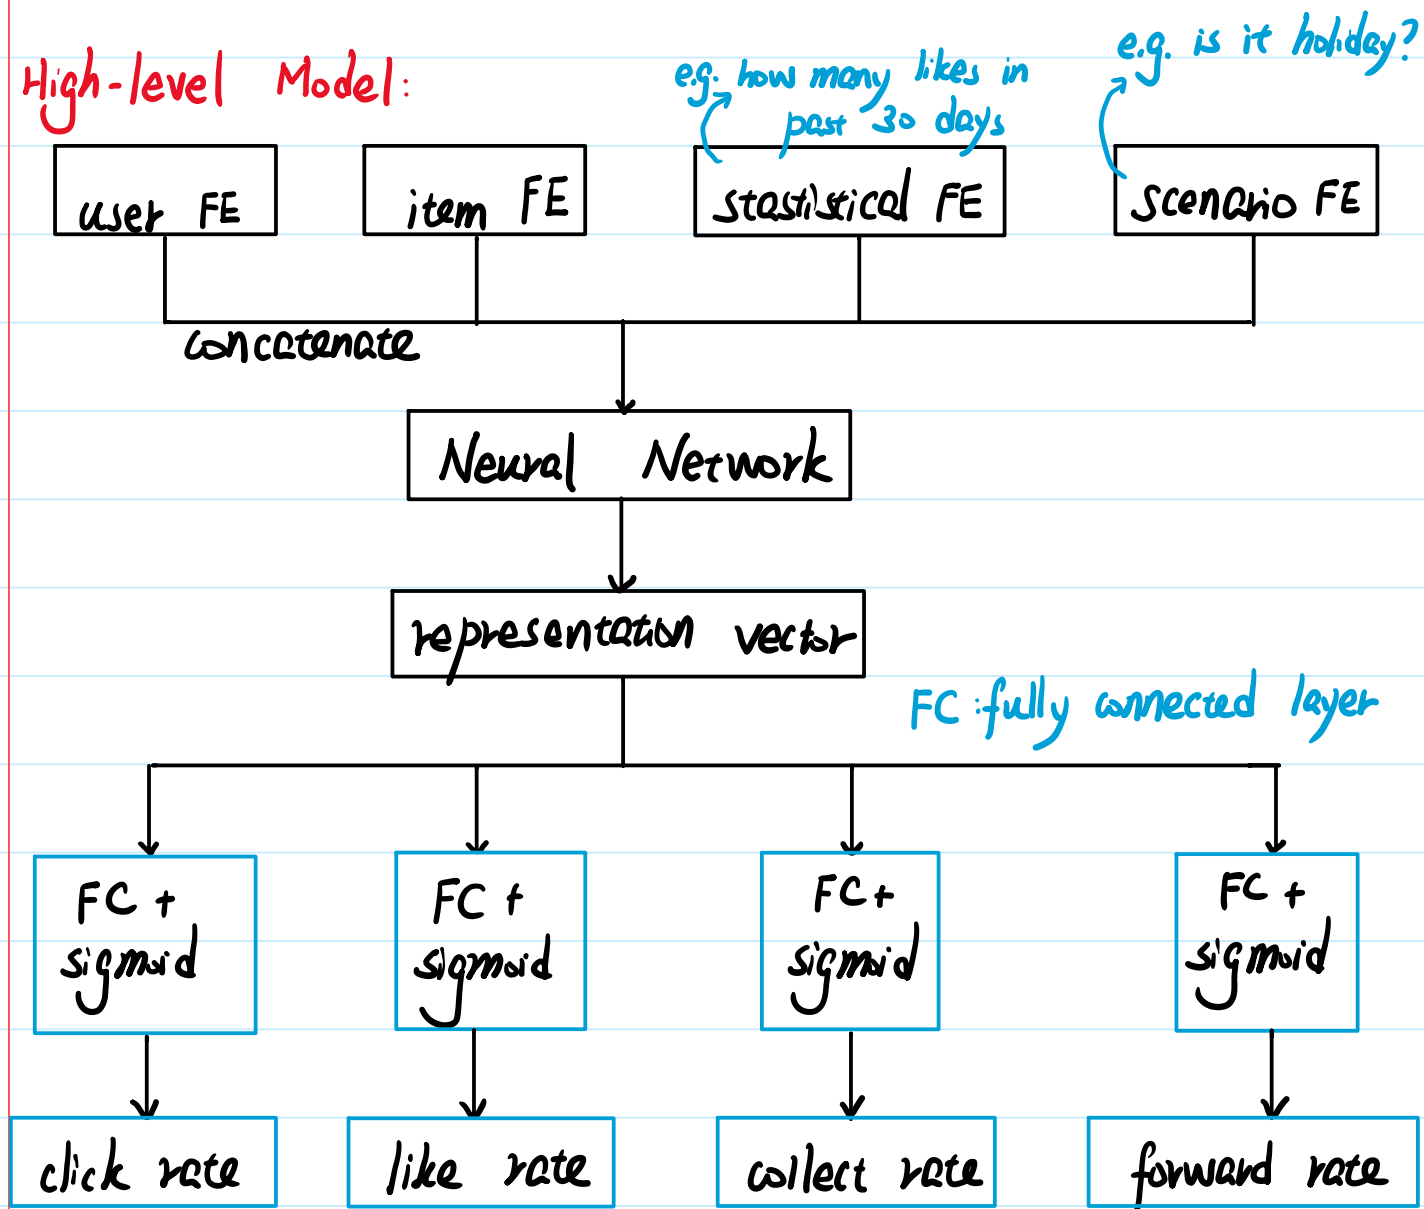 High-level Model:
e.g. how many likes in
past 30 days
e.g. is it holiday?
user FE
item FE
stastistical FE
scenario FE
concatenate
Neural Network
representation vector
FC: fully connected layer
FC +
sigmoid
FC +
sigmoid
FC +
sigmoid
FC +
sigmoid
click rate
like rate
collect rate
forward rate